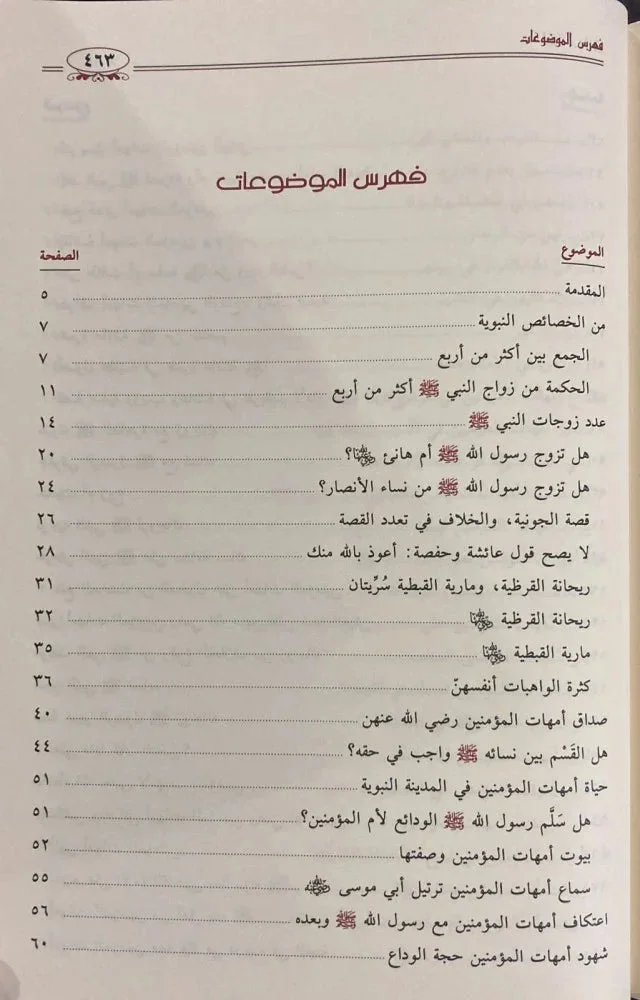 فهرس الموضوعات
٤٦٣
فهرس الموضوعات
الموضوع الصفحة
المقدمة ٥
من الخصائص النبوية ٧
الجمع بين أكثر من أربع ٧
الحكمة من زواج النبي ﷺ أكثر من أربع ١١
عدد زوجات النبي ﷺ ١٤
هل تزوج رسول الله ﷺ أم هانئ رضي الله عنها؟ ٢٠
هل تزوج رسول الله ﷺ من نساء الأنصار؟ ٢٤
قصة الجونية، والخلاف في تعدد القصة ٢٦
لا يصح قول عائشة وحفصة: أعوذ بالله منك ٢٨
ريحانة القرظية، ومارية القبطية سُرِّيتان ٣١
ريحانة القرظية رضي الله عنها ٣٢
مارية القبطية رضي الله عنها ٣٥
كثرة الواهبات أنفسهنّ ٣٦
صداق أمهات المؤمنين رضي الله عنهن ٤٠
هل القَسْم بين نسائه ﷺ واجب في حقه؟ ٤٤
حياة أمهات المؤمنين في المدينة النبوية ٥١
هل سَلَّم رسول الله ﷺ الودائع لأم المؤمنين؟ ٥١
بيوت أمهات المؤمنين وصفتها ٥٢
سماع أمهات المؤمنين ترتيل أبي موسى رضي الله عنه ٥٥
اعتكاف أمهات المؤمنين مع رسول الله ﷺ وبعده ٥٦
شهود أمهات المؤمنين حجة الوداع ٦٠